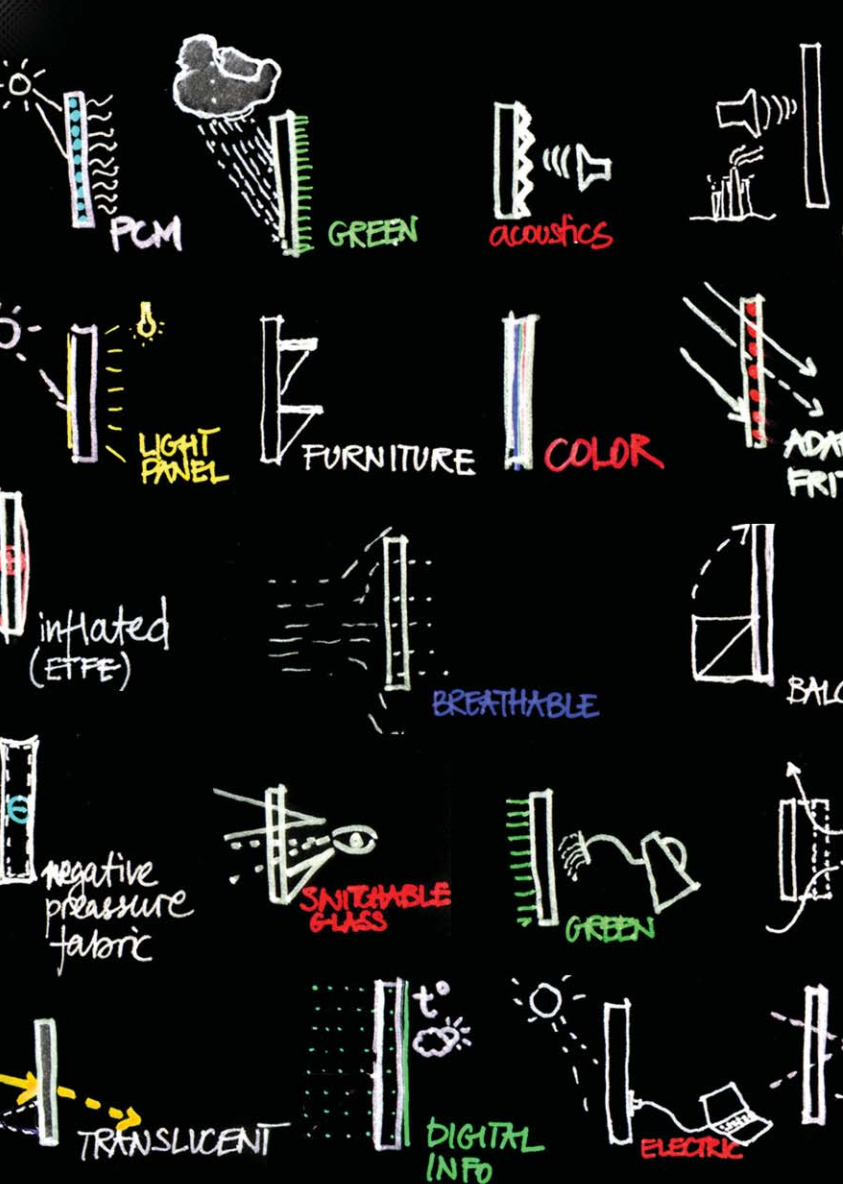 PCM
GREEN
acoustics
LIGHT
PANEL
FURNITURE
COLOR
ADA
FRIT
inflated
(ETFE)
BREATHABLE
BALC
negative
preassure
fabric
SNITCHABLE
GLASS
GREEN
TRANSLUCENT
t°
DIGITAL
INFO
ELECTRIC